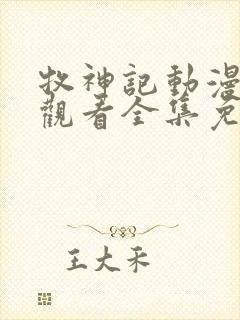 牧神記動漫
觀看全集免
王大禾